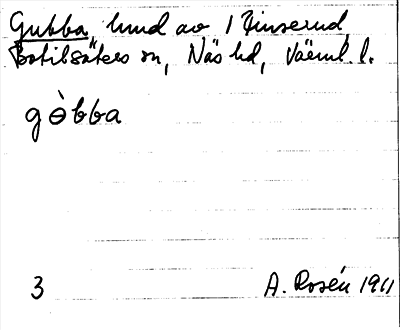 Gubba, hmd av 1 Finserud,
Botilsäters sn, Näs hd, Värml. l.
gɵ̀bba
3
A. Rosén 1911